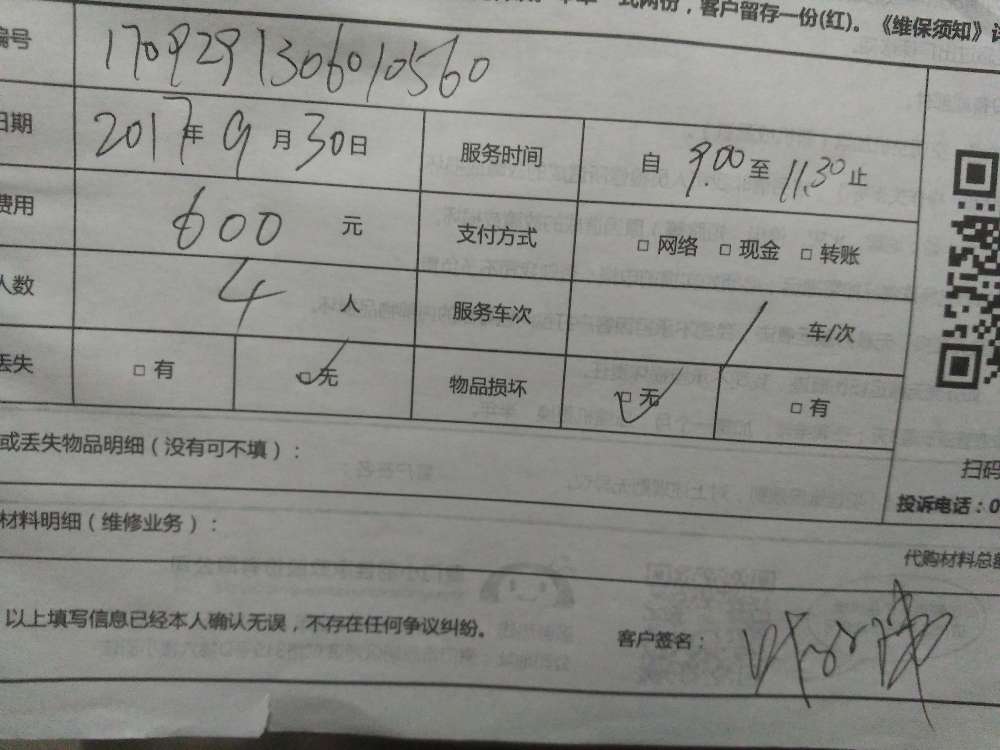 式两份，客户留存一份(红)。《维保须知》
编号 1709291306010560
日期 2017年9月30日 服务时间 自9.00至11.30止
费用 600元 支付方式 □ 网络 □ 现金 □ 转账
人数 4人 服务车次 1 车/次
丢失 □ 有 □ 无 物品损坏 □ 无 □ 有
或丢失物品明细（没有可不填）：
扫码
投诉电话：0
材料明细（维修业务）：
代购材料总额
以上填写信息已经本人确认无误，不存在任何争议纠纷。
客户签名：